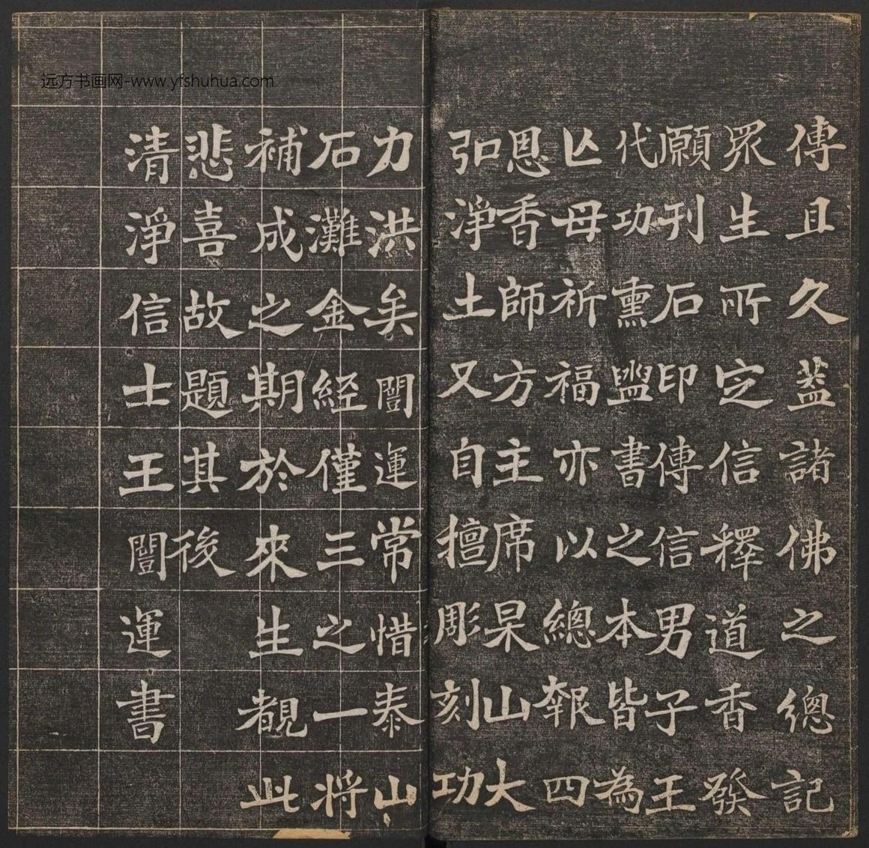 远方书画网-www.yfshuhua.com
傳且久蓋諸佛之總記
眾生所定信釋道香發
願刊石印傳信男子王
代功熏盥書之本皆為
亾母祈福亦以總報四
恩香師方主席杲山大
弘淨土又自擅彫刻功
力洪矣闓運常惜泰山
石灘金經僅三之一將
補成之期於來生覩此
悲喜故題其後
清淨信士王闓運書